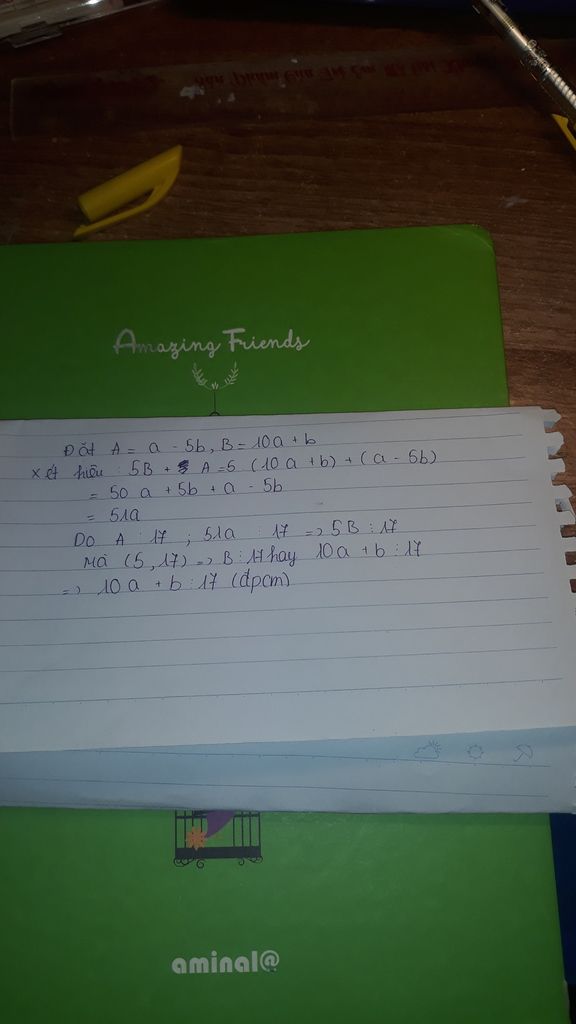 Amazing Friends
Đặt A = a - 5b, B = 10a + b
Xét hiệu : 5B + A = 5 (10a + b) + (a - 5b)
= 50 a + 5b + a - 5b
= 51a
Do A ⋮ 17 ; 51a ⋮ 17 => 5B ⋮ 17
Mà (5, 17) => B ⋮ 17 hay 10a + b ⋮ 17
=> 10 a + b ⋮ 17 (đpcm)
aminal@